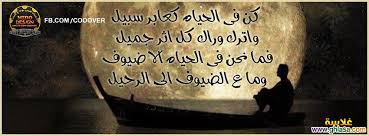 كن فى الحياه كعابر سبيل
واترك وراك كل اثر جميل
فما نحن فى الحياه الا ضيوف
وما ع الضيوف الى الرحيل
FB.COM/CODOVER
NITRO
DESIGN
غلاسة
www.ghlasa.com